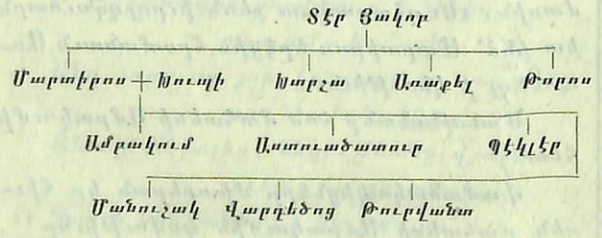 Տէր Յակոբ
Մարտիրոս + Խուպի Խարշա Առաքել Թորոս
Ամբակում Աստուածատուր Պէկլէր
Մանուշակ Վարդեծոց Թուրվանտա